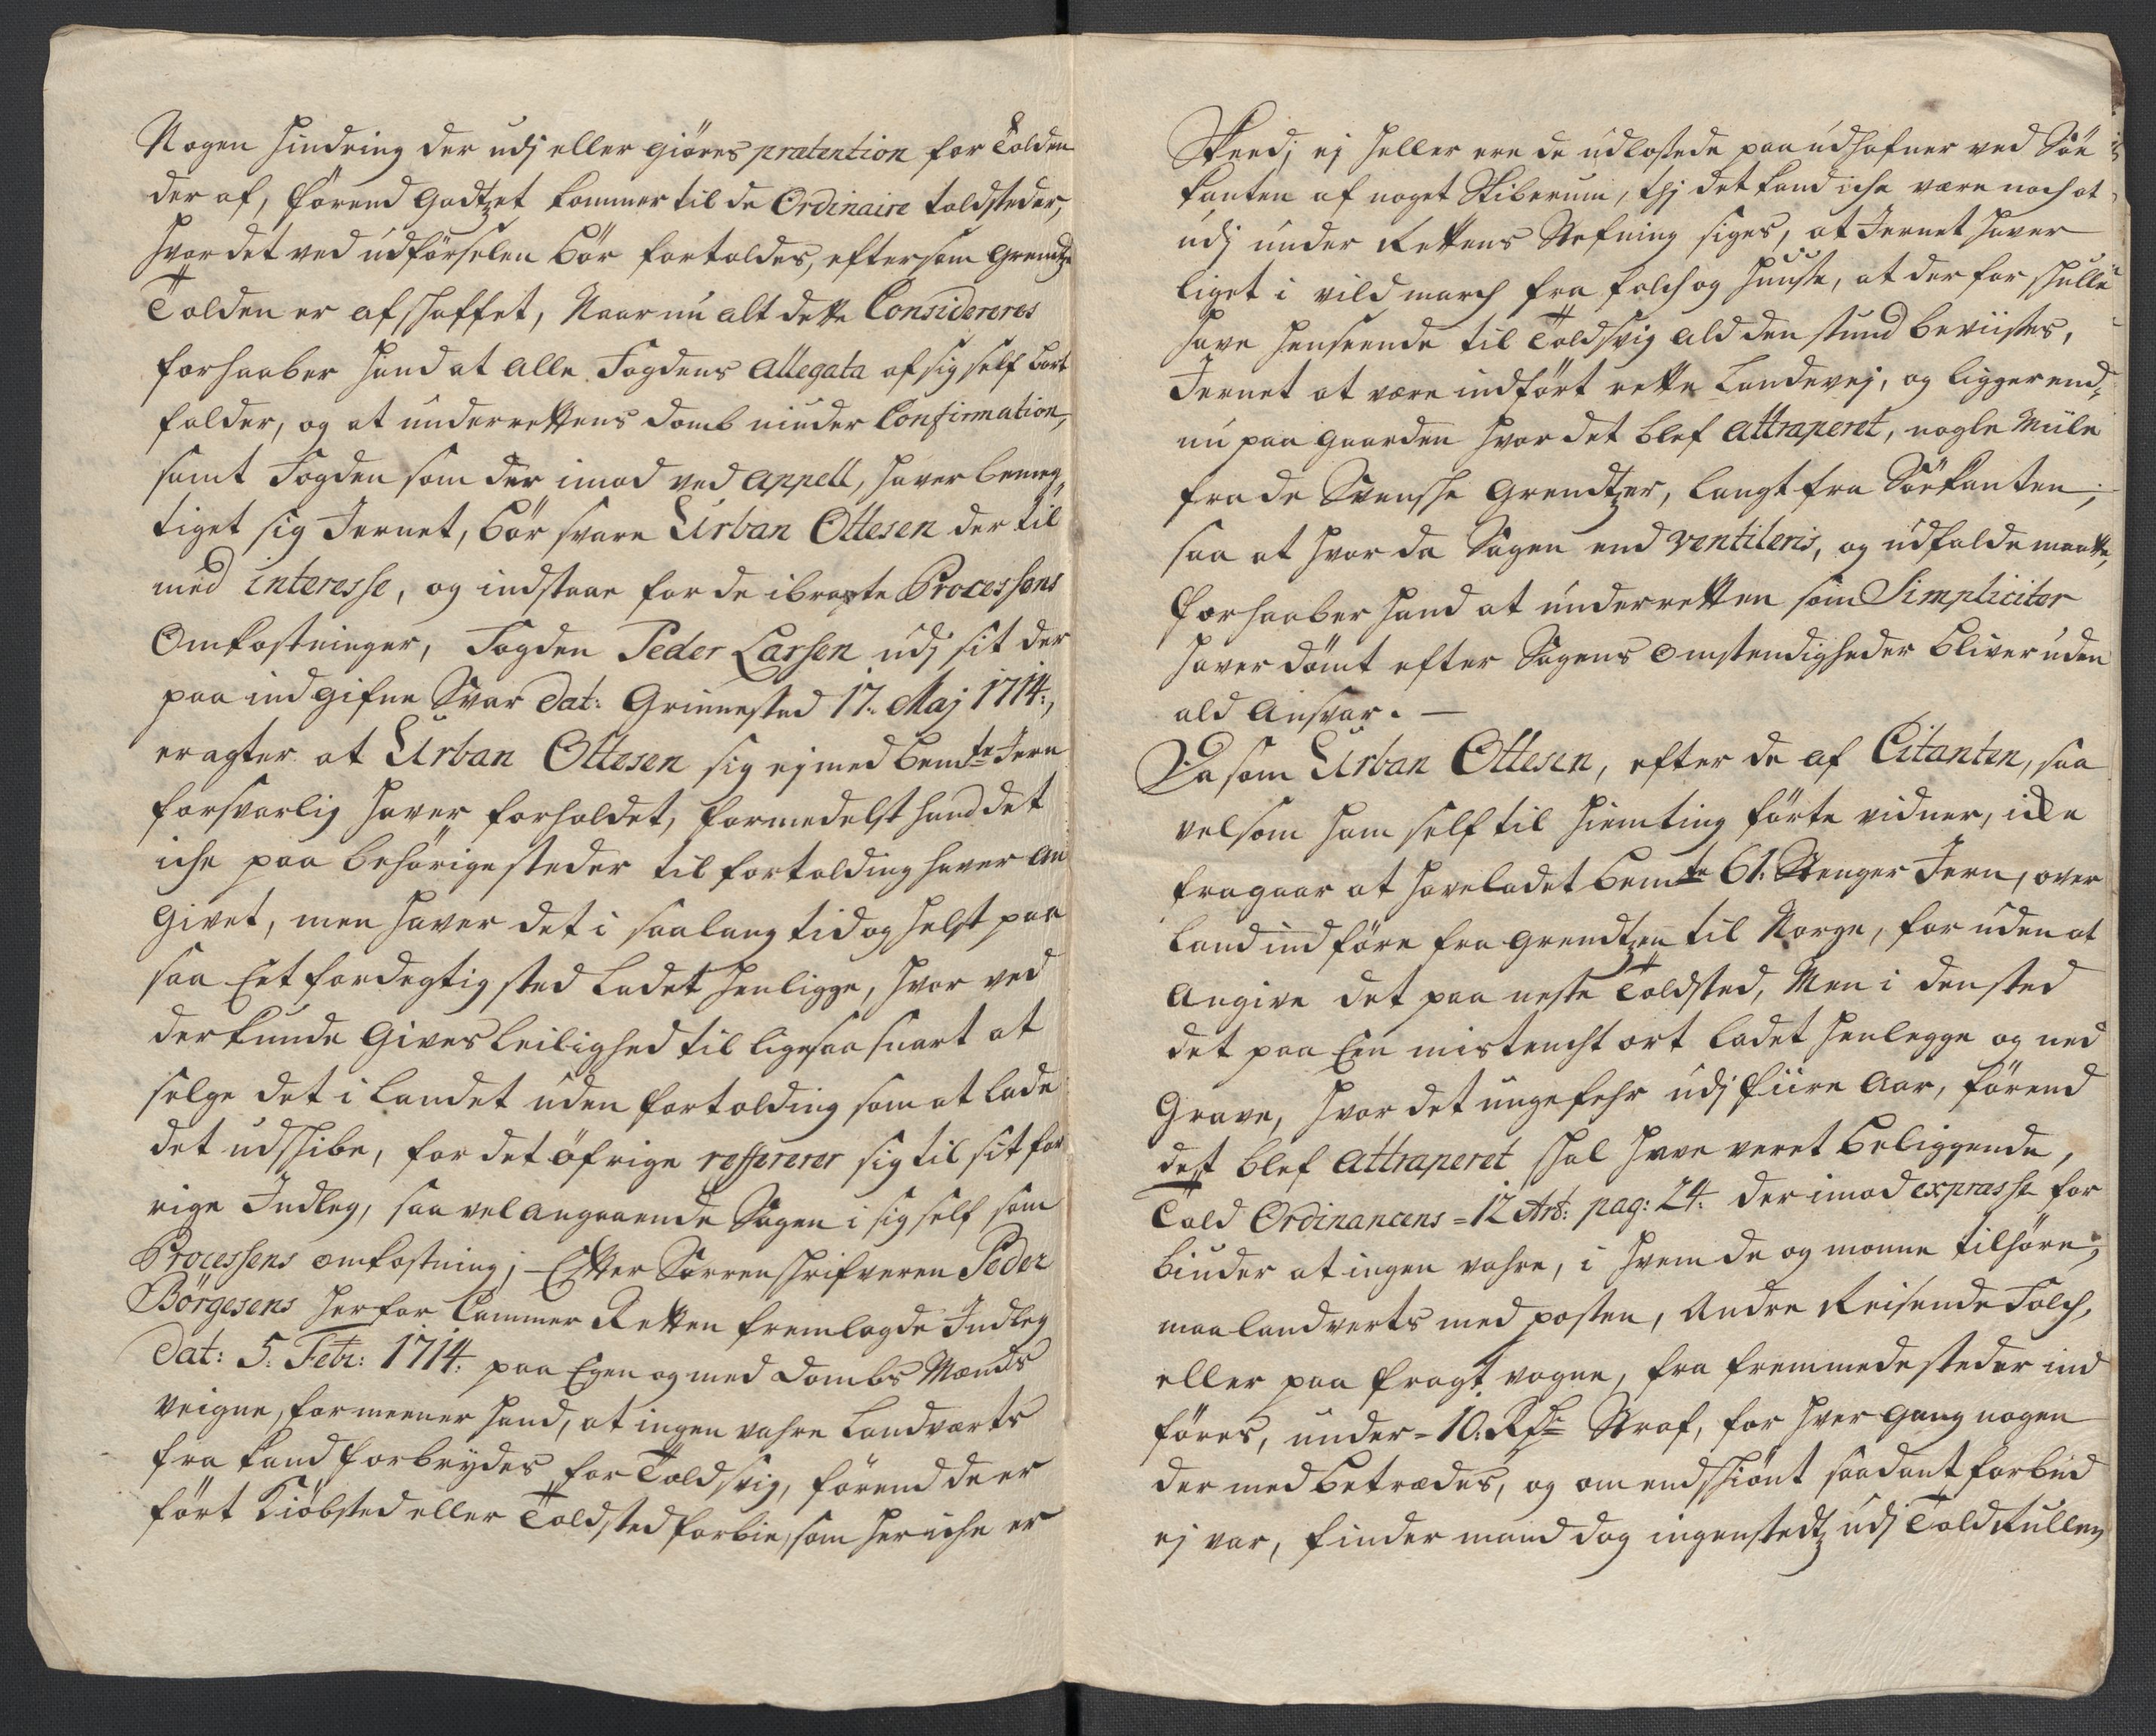 Nogen hindring der udj eller giøres prætention for Tolden
der af, førend godtzet kommer til de Ordinaire toldsteder,
hvor det ved udførselen bør fortoldes, eftersom grendtze
Tolden er afskaffet, Naar nu alt dette Considereres
forhaaber hand at alle Fogdens allegata af sig self bort
falder, og at underrettens domb niuder Confirmation,
samt Fogden som der imod ved appell, haver bemeg„
tiget sig Jernet, bør svare Urban Ottesen der til
med interesse, og indstaae for de ibragte Processens
Omkostninger, Fogden Peder Larsen udj sit der
paa indgifne Svar Dat: Grimmested 17. Maj 1714.,
eragter at Urban Ottesen sig ej med bemte Jern
forsvarlig haver forholdet, formedelst hand det
iche paa behørige steder til fortolding haver an
givet, men haver det i saa lang tid og helst paa
saa Eet fordegtig sted ladet henligge, hvor ved
der kunde gives leilighed til ligesaa snart at
selge det i landet uden fortolding som at lade
det udskibe, for det øfrige reffererer sig til sit for
rige Indleg, saa vel angaaende Sagen i sig self som
Processens omkostning; – Efter Sorrenskrifveren Peder
Börgesens her for Cammer Retten fremlagde Indleg
Dat: 5. Febr: 1714. paa Egen og med dombs Mænds
veigne, formeener hand, at ingen vahre Landværts
fra kand forbrydes for Toldsvig, førend de er
ført Kiøbsted eller Toldsted forbie, som her iche er
Skeed; ej heller ere de udlossede paa udhafner ved Søe
kanten af noget Skiberum, thj det kand iche være noch at
udj under Rettens Stefning siges, at Jernet haver
liget i vildmarch fra folch og huuse, at der for skulle
have henseende til Toldsvig ald den stund beviises,
Jernet at være indført rette Landevej, og ligger end„
nu paa gaarden hvor det blef attraperet, nogle Miile
fra de Svenske grendtzer, langt fra Søekanten;
saa at hvor da Sagen end ventileris, og udfalde maatte,
forhaaber hand at underretten som Simpliciter
haver dømt efter Sagens omstendigheder bliver uden
ald Ansvar. –
Da som Urban Ottesen, efter de af Citanten, saa
vel som ham self til hiemting førte vidner, icke
fragaar at have ladet bemte 61. Stenger Jern, over
land indføre fra grendtzen til Norge, for uden at
Angive det paa neste Toldsted, Men i den sted
det paa Een mistencht ort ladet henlegge og ned
grave, hvor det ungefehr udj fiire Aar, førend
det blef attraperet skal have veret beliggende,
Told Ordinancens = 12 Art: pag: 24. der imod expresse for
biuder at ingen vahre, i hvem de og monne tilhøre,
maa landverts med posten, Andre Reisende Folch,
eller paa fragt vogne, fra fremmede steder ind
føres, under = 10. Rdr Straf, for hver gang nogen
der med betrædes, og om endskiønt saadant forbud
ej var, finder mand dog ingenstedtz udj Told Rullen